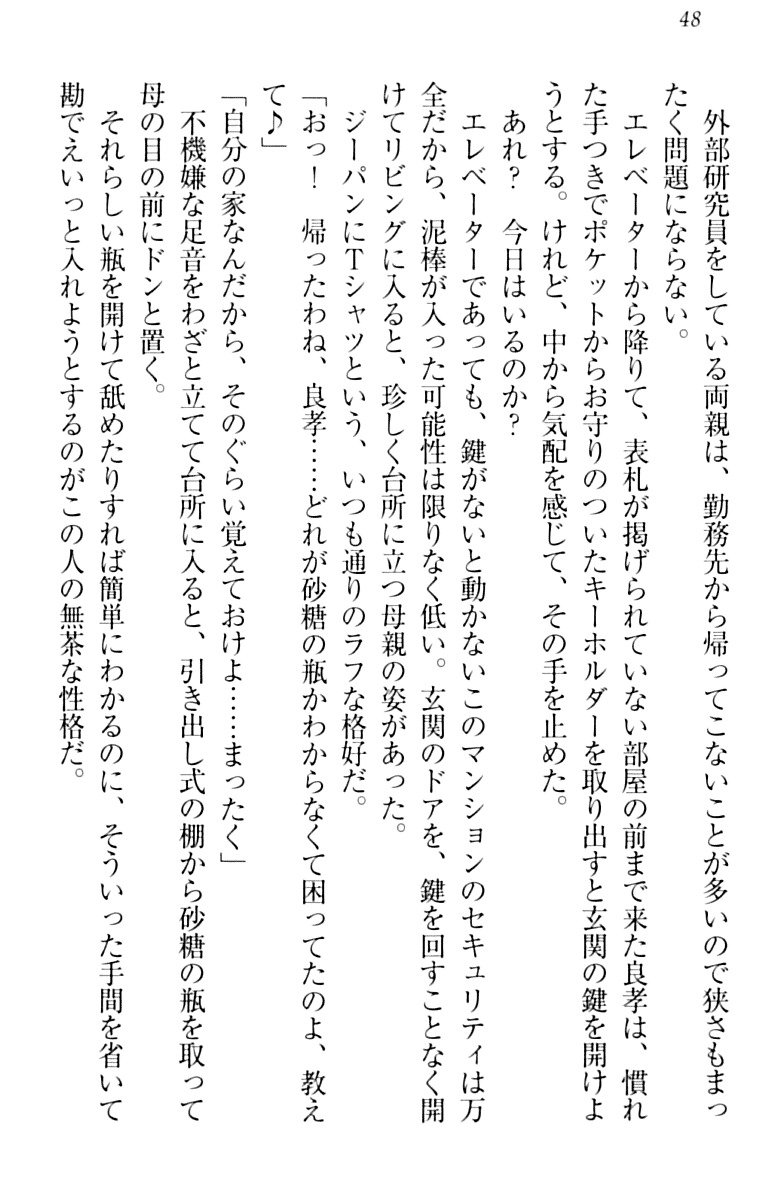 48
外部研究員をしている両親は、勤務先から帰ってこないことが多いので狭さもまっ
たく問題にならない。
エレベーターから降りて、表札が掲げられていない部屋の前まで来た良孝は、慣れ
た手つきでポケットからお守りのついたキーホルダーを取り出すと玄関の鍵を開けよ
うとする。けれど、中から気配を感じて、その手を止めた。
あれ？　今日はいるのか？
エレベーターであっても、鍵がないと動かないこのマンションのセキュリティは万
全だから、泥棒が入った可能性は限りなく低い。玄関のドアを、鍵を回すことなく開
けてリビングに入ると、珍しく台所に立つ母親の姿があった。
ジーパンにＴシャツという、いつも通りのラフな格好だ。
「おっ！　帰ったわね、良孝……どれが砂糖の瓶かわからなくて困ってたのよ、教え
て♪」
「自分の家なんだから、そのぐらい覚えておけよ……まったく」
不機嫌な足音をわざと立てて台所に入ると、引き出し式の棚から砂糖の瓶を取って
母の目の前にドンと置く。
それらしい瓶を開けて舐めたりすれば簡単にわかるのに、そういった手間を省いて
勘でえいっと入れようとするのがこの人の無茶な性格だ。